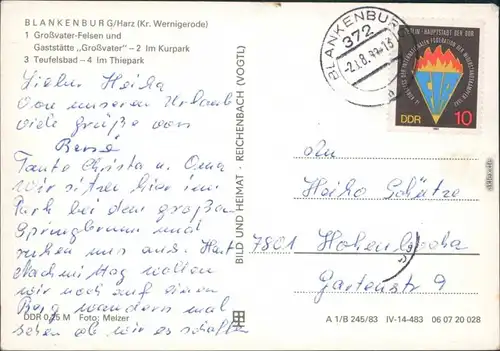 BLANKENBURG/Harz (Kr. Wernigerode)
1 Großvater-Felsen und
Gaststätte „Großvater" – 2 Im Kurpark
3 Teufelsbad – 4 Im Thiepark
Lieber Heiko
Von unseren Urlaub
viele grüße von
René
Tante Christa u. Oma
wir sitzen hier im
Park bei dem großen
Springbrunnen und
ruhen uns aus. Heut
Nachmittag wollen
wir noch auf einen
Berg wandern mal
sehen ob wir es schaffen
DDR 0,25 M Foto: Melzer
BILD UND HEIMAT · REICHENBACH (VOGTL)
BLANKENBURG
372
-2.1.8.
BERLIN · HAUPTSTADT DER DDR
FIR
DDR 10
An
Heiko Schütze
7801 Hohenbocka
Gartenstr 9
A 1/B 245/83 IV-14-483 06 07 20 028